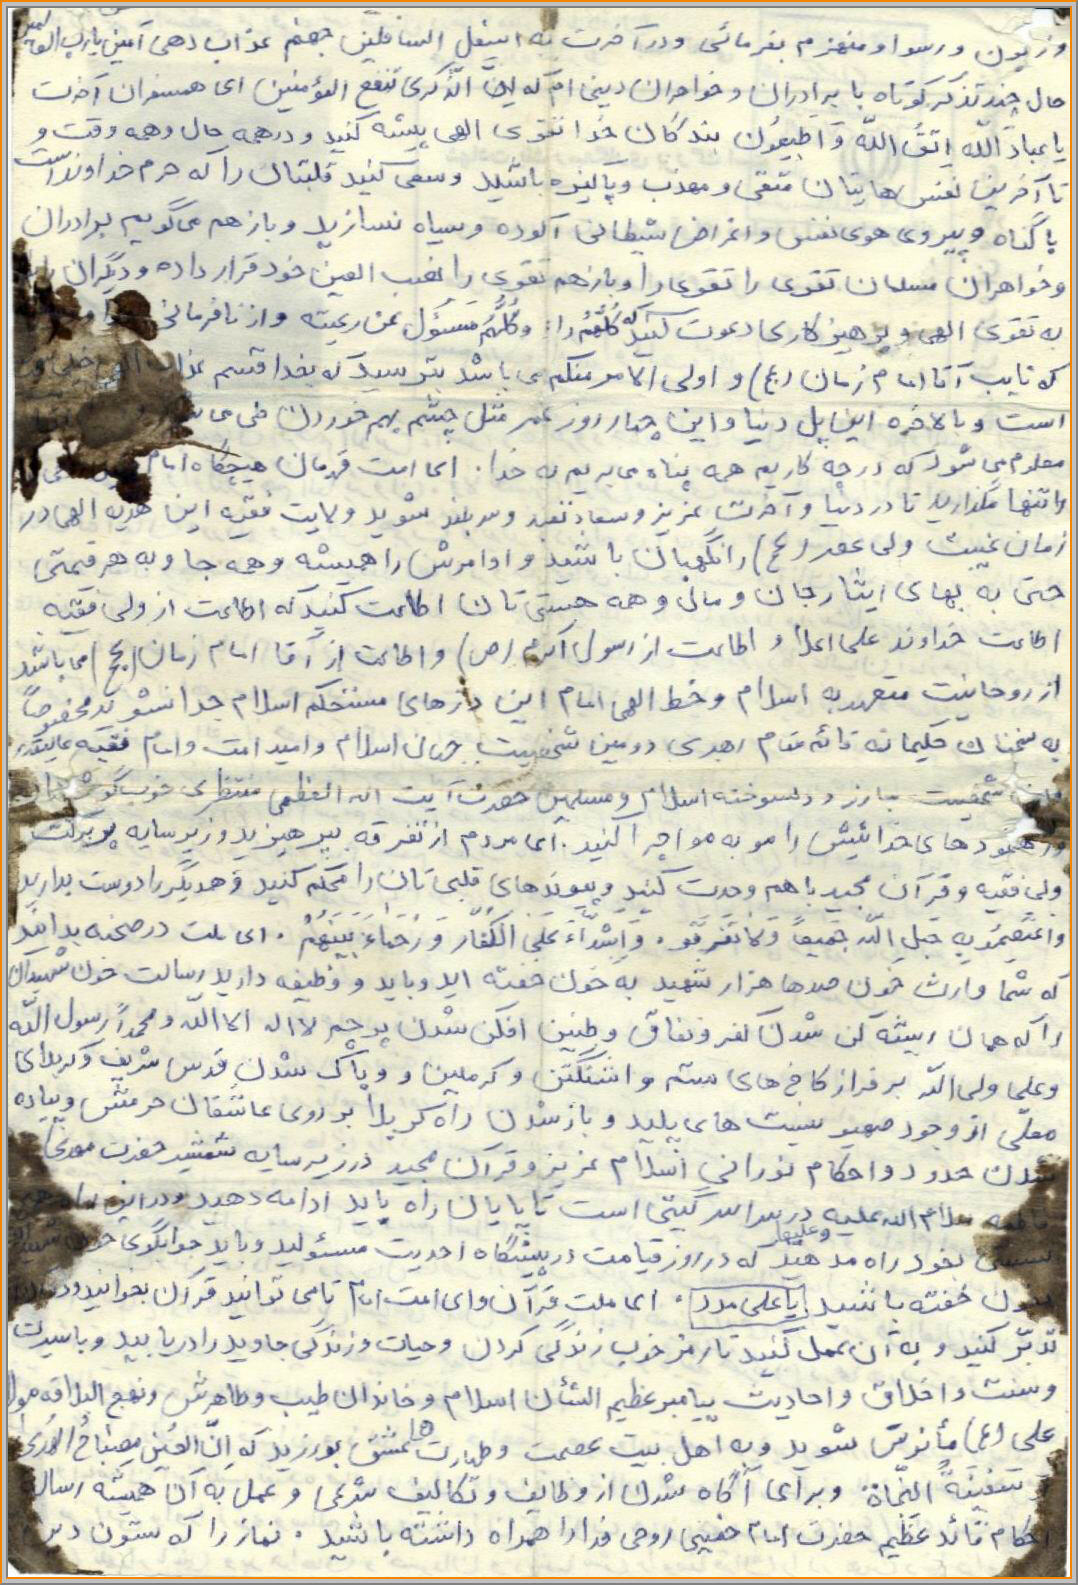 و زبون و رسوا و منهزم بفرمائی و در آخرت به اسفل السافلین جهنم عذاب دهی آمین یا رب العالمین
حال چند تذکر کوتاه با برادران و خواهران دینی ام که اِنَّ الذِّکری تَنفَعُ المؤمنین ای همسفران آخرت
یا عبادَ اللّه اِتقُ اللّه وَ اَطیعُون بندگان خدا تقوی الهی پیشه کنید و در همه حال و همه وقت و
تا آخرین نفس هایتان متقی و مهذب و پاکیزه باشید و سعی کنید قلبتان را که حرم خداوند است
با گناه و پیروی هوی نفس و اغراض شیطانی آلوده و سیاه نسازید و باز هم می گویم برادران
و خواهران مسلمان تقوی را تقوی را و باز هم تقوی را نصب العین خود قرار داده و دیگران را
به تقوی الهی و پرهیزکاری دعوت کنید که کُلُّکُم راعٍ وَ کُلُّکُم مَسئُول عن رعیته و از نافرمانی
که نایب آقا امام زمان (عج) و اولی الامر منکم می باشد بترسید که بخدا قسم عذاب الهی خیلی
است و بالاخره این پل دنیا و این چهار روز عمر مثل چشم بهم خوردن طی می
معلوم می شود که در چه کاریم همه پناه می بریم به خدا. ای امت قهرمان هیچگاه امام
را تنها نگذارید تا در دنیا و آخرت عزیز و سعادتمند و سربلند شوید ولایت فقیه این هدیه الهی در
زمان غیبت ولی عصر (عج) را نگهبان باشید و اوامرش را همیشه و همه جا و به هر قیمتی
حتی به بهای ایثار جان و مال و همه هستی تان اطاعت کنید که اطاعت از ولی فقیه
اطاعت خداوند علی اعلا و اطاعت از رسول اکرم (ص) و اطاعت از آقا امام زمان (عج) می باشد
از روحانیت متعهد به اسلام و خط الهی امام این دژهای مستحکم اسلام جدا نشوید مخصوصاً
به سخنان حکیمانه قائم مقام رهبری دومین شخصیت جهان اسلام و امید امت و امام فقیه عالیقدر
شخصیت مبارز و دلسوخته اسلام و مسلمین حضرت آیت اله العظمی منتظری خوب گوش
و رهنمودهای خدائیش را مو به مو اجرا کنید. ای مردم از تفرقه بپرهیزید و زیر سایه پر برکت
ولی فقیه و قرآن مجید با هم وحدت کنید و پیوندهای قلبی تان را محکم کنید و همدیگر را دوست بدارید
واعتَصِمُو بِه حَبلِ اللّه جَمیعاً وَ لا تَفَرَّقو. وَ اَشِدّآءُ عَلَی الکُفّار وَ رُحَماءُ بَینَهُم. ای ملت در صحنه بدانید
که شما وارث خون صدها هزار شهید به خون خفته اید و باید و وظیفه دارید رسالت خون شهیدان
را که همان ریشه کن شدن کفر و نفاق و طنین افکن شدن پرچم لا اله الا الله و محمداً رسول اللّه
و علی ولی اللّه بر فراز کاخ های ستم واشنگتن و کرملین و و پاک شدن قدس شریف و کربلای
معلّی از وجود صهیونیست های پلید و باز شدن راه کربلا بر روی عاشقان حرمتش و پیاده
شدن حدود و احکام نورانی اسلام عزیز و قرآن مجید در زیر سایه شمشیر حضرت مهدی
فاطمه سلام اله علیه و علیها در سراسر گیتی است تا پایان راه باید ادامه دهید و در این راه هیچ
سستی بخود راه مدهید که در روز قیامت در پیشگاه احدیت مسئولید و باید جوابگوی خون شهیدان
خون خفته باشید یا علی مدد. ای ملت قرآن و ای امت امام تا می توانید قرآن بخوانید و در آن
تدبّر کنید و به آن عمل کنید تا رمز خوب زندگی کردن و حیات و زندگی جاوید را دریابید و با سیرت
و سنت و اخلاق و احادیث پیامبر عظیم الشأن اسلام و خاندان طیب و طاهرش و نهج البلاغه مولا
علی (ع) مأنوس شوید و به اهل بیت عصمت و طهارت (ع) عشق بورزید که اِنَّ الحُسَین مِصباحُ الهُدی
وَ سَفینَةُ النَّجاة. و برای آگاه شدن از وظایف و تکالیف شرعی و عمل به آن همیشه رساله
احکام قائد عظیم حضرت امام خمینی روحی فدا را همراه داشته باشید. نماز را که ستون دین